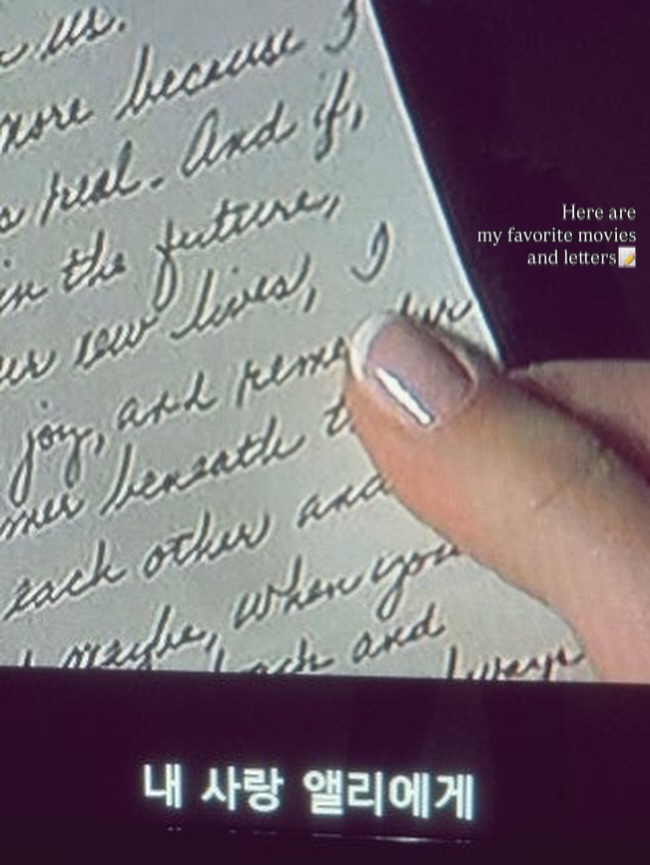 us.
more because I
real. And if,
in the future,
new lives, I
joy, and
beneath
each other and
maybe, when you
back and
Here are
my favorite movies
and letters📝
내 사랑 앨리에게